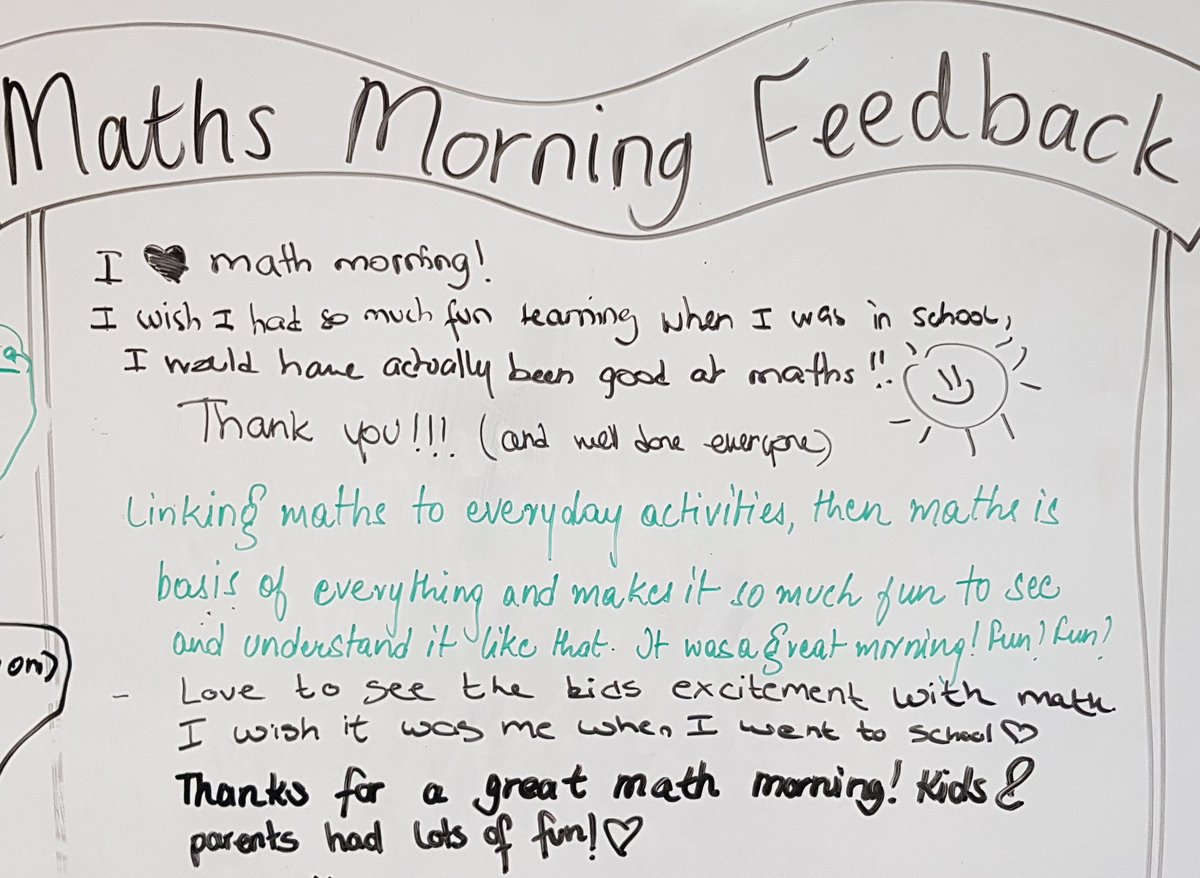 Maths Morning Feedback
I ♥ math morning!
I wish I had so much fun learning when I was in school,
I would have actually been good at maths!!
Thank you!!! (and well done everyone)
Linking maths to everyday activities, then maths is
basis of everything and makes it so much fun to see
and understand it like that. It was a great morning! Fun? Fun?
- Love to see the kids excitement with math
I wish it was me when I went to school ♡
Thanks for a great math morning! Kids &
parents had lots of fun! ♡
a
on)